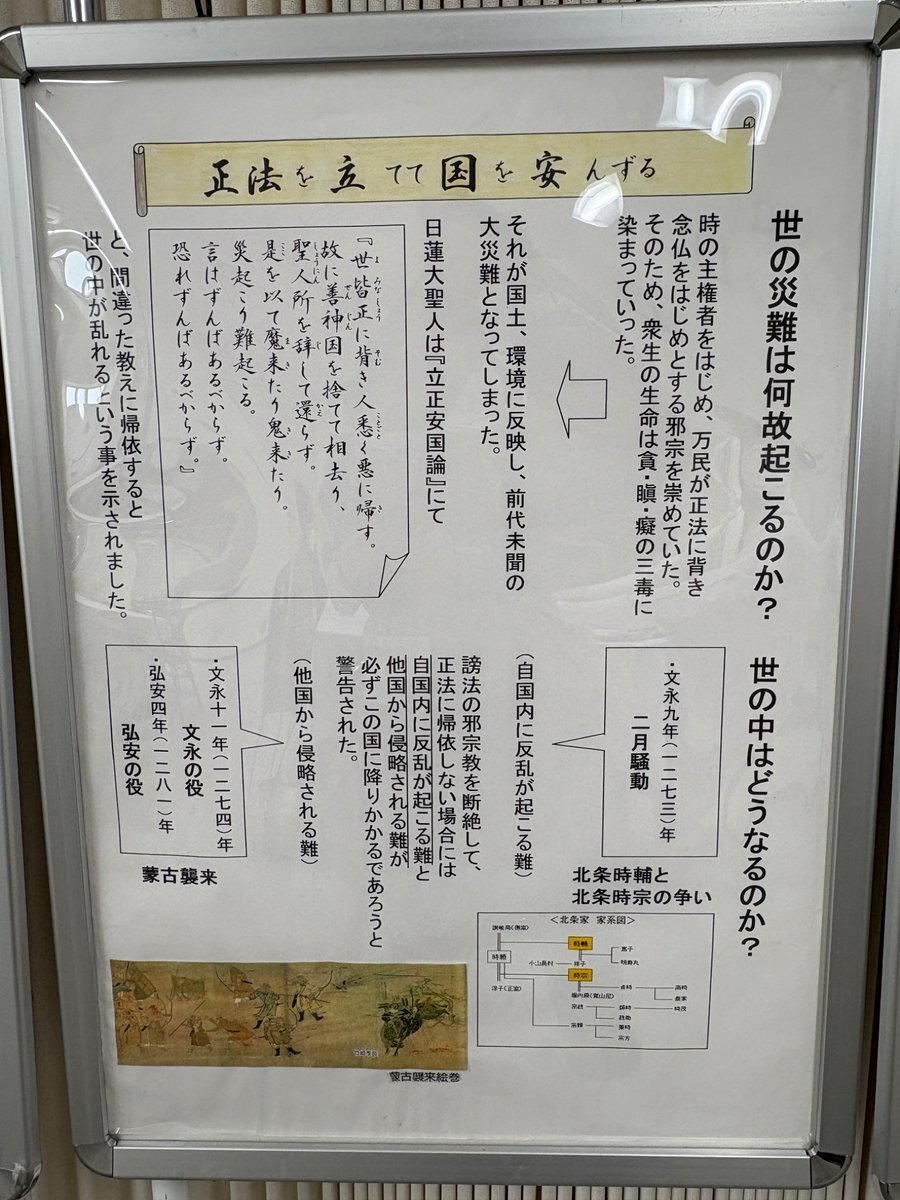 正法を立てて国を安んずる
世の災難は何故起こるのか？ 世の中はどうなるのか？
時の主権者をはじめ、万民が正法に背き
念仏をはじめとする邪宗を崇めていた。
そのため、衆生の生命は貪・瞋・癡の三毒に
染まっていった。
それが国土、環境に反映し、前代未聞の
大災難となってしまった。
日蓮大聖人は『立正安国論』にて
『世皆正に背き人悉く悪に帰す。
故に善神国を捨てて相去り、
聖人所を辞して還らず。
是を以て魔来たり鬼来たり。
災起こり難起こる。
言はずんばあるべからず。
恐れずんばあるべからず。』
と、間違った教えに帰依すると
世の中が乱れるという事を示されました。
・文永九年(一二七三)年
二月騒動
北条時輔と
北条時宗の争い
(自国内に反乱が起こる難)
謗法の邪宗教を断絶して、
正法に帰依しない場合には
自国内に反乱が起こる難と
他国から侵略される難が
必ずこの国に降りかかるであろうと
警告された。
(他国から侵略される難)
・文永十一年(一二七四)年
文永の役
・弘安四年(一二八一)年
弘安の役
蒙古襲来
＜北条家 家系図＞
讃岐局(側室)
時頼
時輔
小山長村
明寿丸
時宗
堀内殿(覚山尼)
貞時
高時
泰家
宗政
師時
時茂
政助
宗頼
兼時
宗方
蒙古襲来絵巻